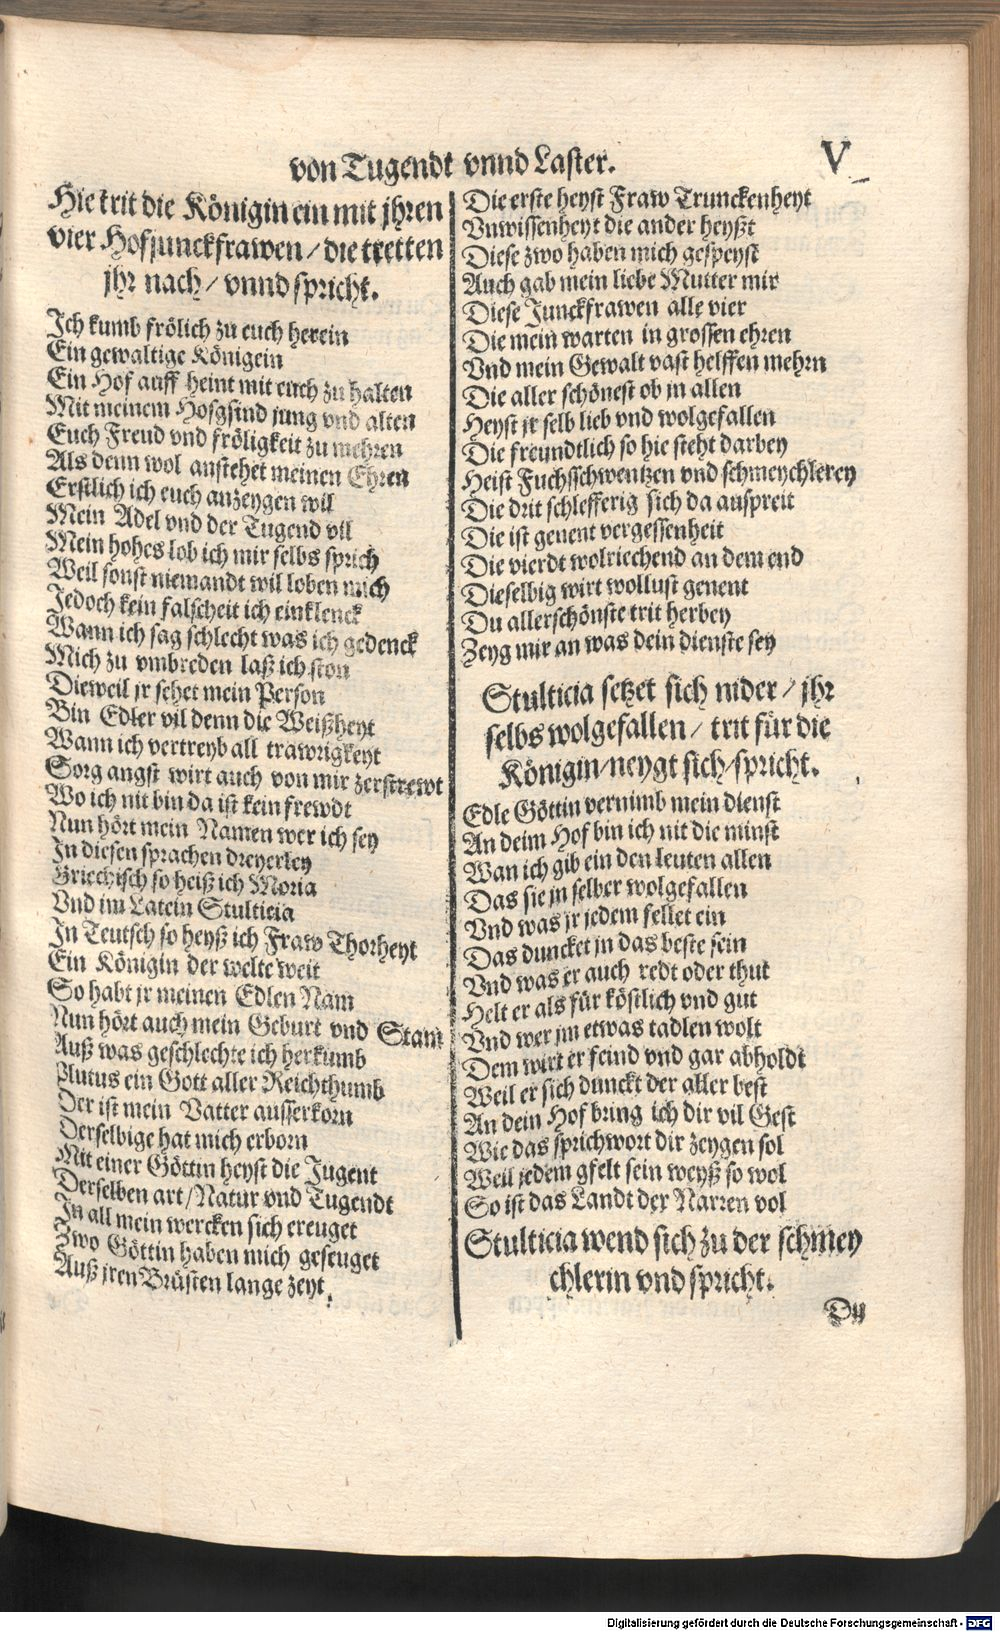 von Tugendt vnnd Laster.
V
Hie trit die Königin ein mit jhren
vier Hofjunckfrawen / die tretten
jhr nach / vnnd spricht.
Ich kumb frölich zu euch herein
Ein gewaltige Königein
Ein Hof auff heint mit euch zu halten
Mit meinem Hofgsind jung vnd alten
Euch Freud vnd fröligkeit zu mehren
Als denn wol anstehet meinen Ehren
Erstlich ich euch anzeygen wil
Mein Adel vnd der Tugend vil
Mein hohes lob ich mir selbs sprich
Weil sonst niemandt wil loben mich
Jedoch kein falscheit ich einklenck
Wann ich sag schlecht was ich gedenck
Mich zu vmbreden laß ich ston
Dieweil jr sehet mein Person
Bin Edler vil denn die Weißheyt
Wann ich vertreyb all trawrigkeyt
Sorg angst wirt auch von mir zerstrewt
Wo ich nit bin da ist kein frewdt
Nun hört mein Namen wer ich sey
In diesen sprachen dreyerley
Griechisch so heiß ich Moria
Vnd im Latein Stulticia
In Teutsch so heyß ich Fraw Thorheyt
Ein Königin der welte weit
So habt jr meinen Edlen Nam
Nun hört auch mein Geburt vnd Stam
Auß was geschlechte ich herkumb
Plutus ein Gott aller Reichthumb
Der ist mein Vatter ausserkorn
Derselbige hat mich erborn
Mit einer Göttin heyst die Jugent
Derselben art / Natur vnd Tugendt
In all mein wercken sich ereuget
Zwo Göttin haben mich geseuget
Auß jren Brüsten lange zeyt.
Die erste heyst Fraw Trunckenheyt
Vnwissenheyt die ander heyßt
Diese zwo haben mich gespeyst
Auch gab mein liebe Mutter mir
Diese Junckfrawen alle vier
Die mein warten in grossen ehren
Vnd mein Gewalt vast helffen mehrn
Die aller schönest ob jn allen
Heyst jr selb lieb vnd wolgefallen
Die freundtlich so hie steht darbey
Heist Fuchsschwentzen vnd schmeychlerey
Die drit schlefferig sich da auspreit
Die ist genent vergessenheit
Die vierdt wolriechend an dem end
Dieselbig wirt wollust genent
Du allerschönste trit herbey
Zeyg mir an was dein dienste sey
Stulticia setzet sich nider / jhr
selbs wolgefallen / trit für die
Königin / neygt sich / spricht.
Edle Göttin vernimb mein dienst
An deim Hof bin ich nit die minst
Wan ich gib ein den leuten allen
Das sie jn selber wolgefallen
Vnd was jr jedem fellet ein
Das duncket jn das beste sein
Vnd was er auch redt oder thut
Helt er als für köstlich vnd gut
Vnd wer jm etwas tadlen wolt
Dem wirt er feind vnd gar abholdt
Weil er sich dunckt der aller best
An dein Hof bring ich dir vil Gest
Wie das sprichwort dir zeygen sol
Weil jedem gfelt sein weyß so wol
So ist das Landt der Narren vol
Stulticia wend sich zu der schmey
chlerin vnd spricht.
Du
Digitalisierung gefördert durch die Deutsche Forschungsgemeinschaft - DFG